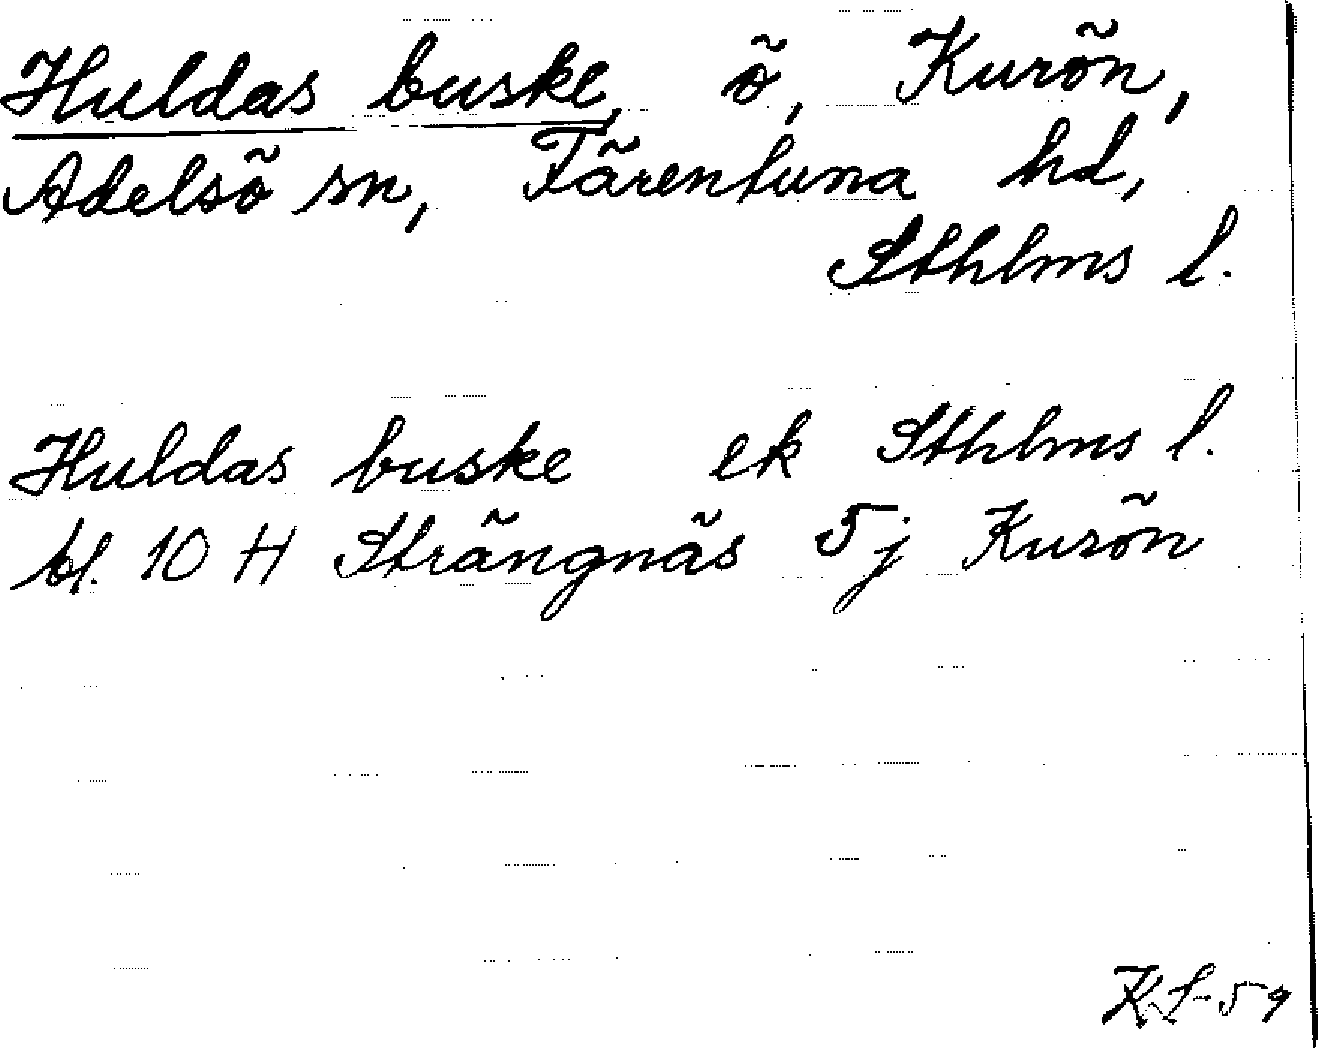 Huldas buske, ö, Kurön,
Adelsö sn, Färentuna hd,
Sthlms l.
Huldas buske ek Sthlms l.
bl. 10 H Strängnäs 5j Kurön
KS-59